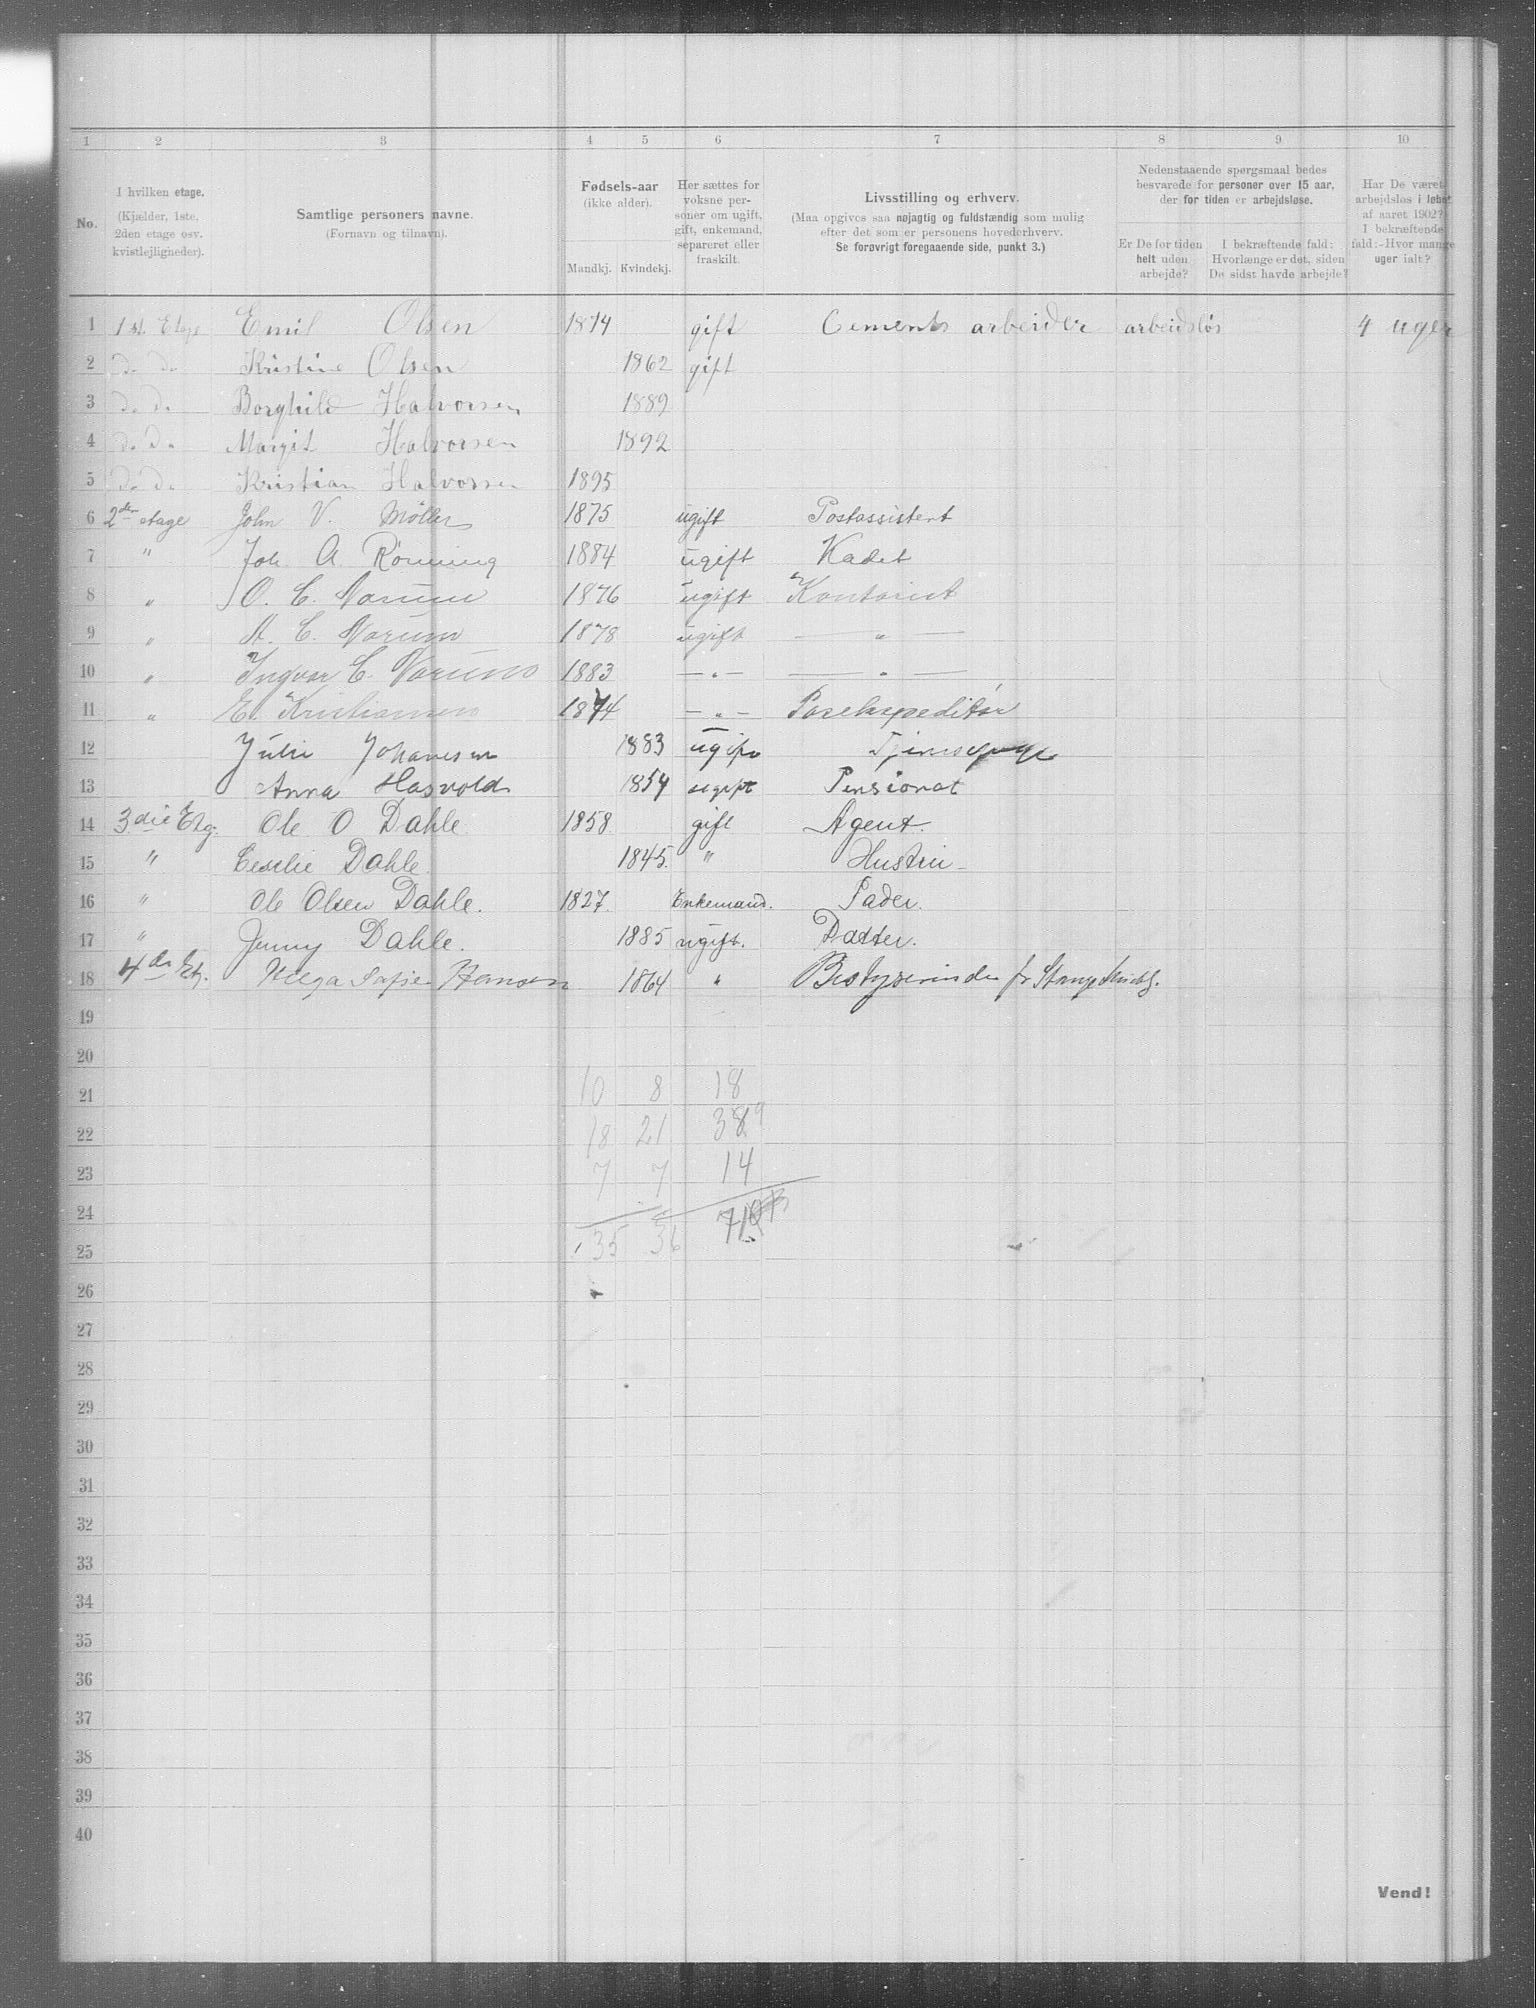 1 2 3 4 5 6 7 8 9 10
No.
I hvilken etage.
(Kjælder, 1ste,
2den etage osv.
kvistlejligheder).
Samtlige personers navne.
(Fornavn og tilnavn).
Fødsels-aar
(ikke alder).
Mandkj. Kvindekj.
Her sættes for
voksne per-
soner om ugift,
gift, enkemand,
separeret eller
fraskilt.
Livsstilling og erhverv.
(Maa opgives saa nøjagtig og fuldstændig som mulig
efter det som er personens hovederhverv.
Se forøvrigt foregaaende side, punkt 3.)
Nedenstaaende spørgsmaal bedes
besvarede for personer over 15 aar,
der for tiden er arbejdsløse.
Er De for tiden
helt uden
arbejde?
I bekræftende fald:
Hvorlænge er det, siden
De sidst havde arbejde?
Har De været
arbejdsløs i løbet
af aaret 1902?
I bekræftende
fald:-Hvor mange
uger ialt?
1 1st. Etage Emil Olsen 1874 gift Cements arbeider arbeidsløs 4 uger
2 do do Kristine Olsen 1862 gift
3 do do Borghild Halvorsen 1889
4 do do Margit Halvorsen 1892
5 do do Kristian Halvorsen 1895
6 2den etage John V. Møller 1875 ugift Postassistent
7 " Joh. A. Rønning 1884 ugift Kadet
8 " O. C. Narum 1876 ugift Kontorist
9 " A. C. Narum 1878 ugift — " —
10 " Ingvar C. Narum 1883 — " — — " —
11 " E. Kristiansen 1874 — " —
12 Julie Johansen 1883 ugift
13 Anna Hasvold 1854 ugift Pensionat
14 3die Etg. Ole O Dahle 1858 gift Agent.
15 " Ceselie Dahle. 1845. " Hustru
16 " Ole Olsen Dahle. 1827. Enkemand. Fader.
17 " Jenny Dahle. 1885 ugift. Datter.
18 4de Etg. Helga Sofie Hansen 1864 " Bestyrerinde fr
19
20
21 10 8 18
22 18 21 39
23 7 7 14
24
25 35 36 71
26
27
28
29
30
31
32
33
34
35
36
37
38
39
40
Vend!